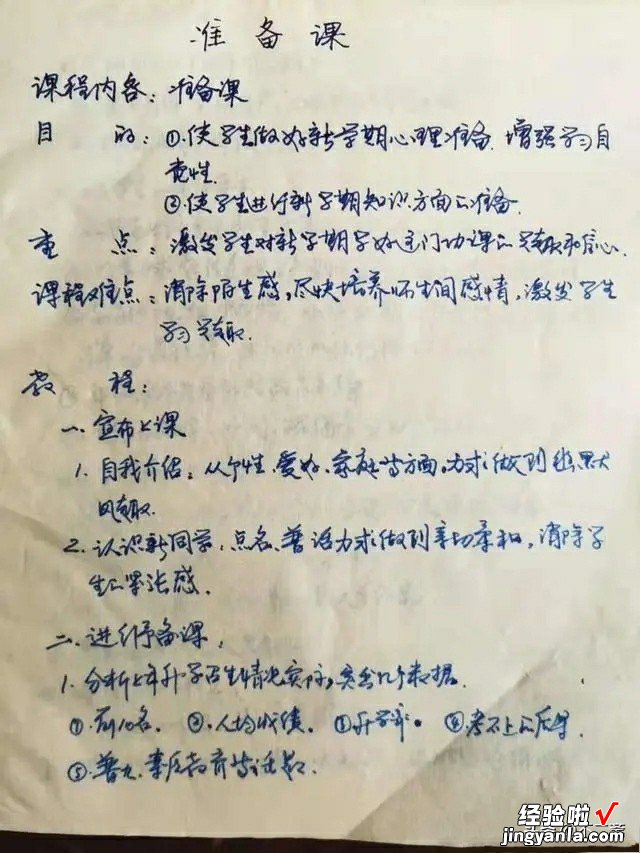 准备课
课程内容：准备课
目 的：①.使学生做好新学期心理准备.增强学习自
觉性.
②.使学生进行新学期知识方面的准备.
重 点：激发学生对新学期学好这门功课的兴趣和信心.
课程难点：消除陌生感,尽快培养师生间感情,激发学生
学习兴趣.
教 程：
一.宣布上课
1.自我介绍：从个性、爱好、家庭等方面,力求做到幽默
风趣.
2.认识新同学.点名、普话力求做到亲切柔和,消除学
生的紧张感.
二.进行予备课：
1.分析上年升学的生情况实际,突出几个数据.
①.前10名. ②.人均成绩. ③升学率. ④考不上的后果
⑤.普九.素质教育等话题.
经验啦√
jingyanla.com